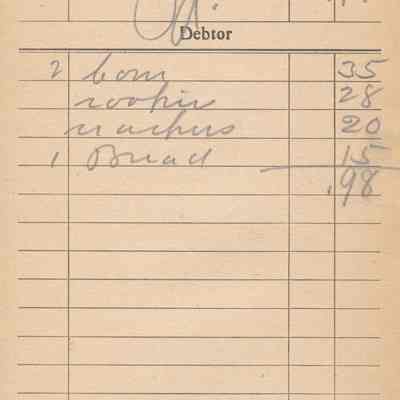 Debtor
2 corn 35
cookies 28
crackers 20
1 Bread 15
.98